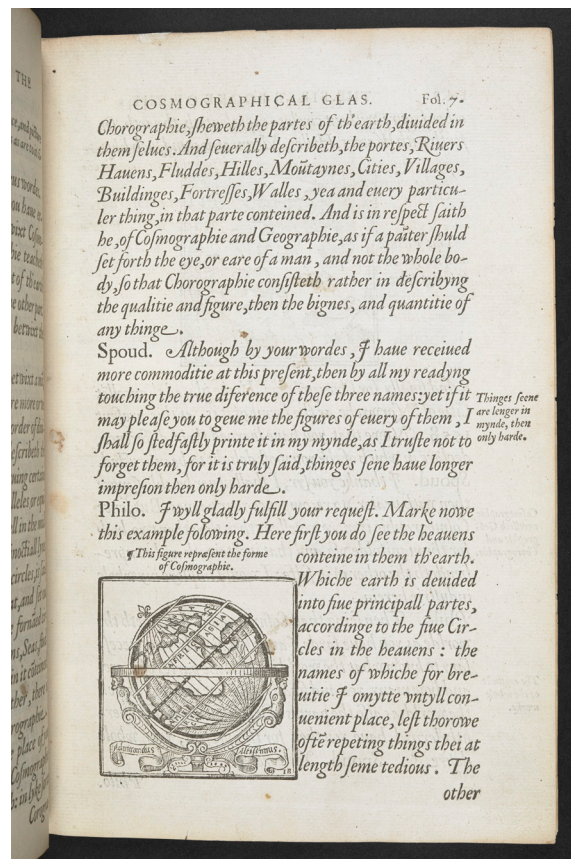 THE
COSMOGRAPHICAL GLAS. Fol. 7.
Chorographie, sheweth the partes of th'earth, diuided in
them selues. And seuerally describeth, the portes, Riuers
Hauens, Fluddes, Hilles, Moūtaynes, Cities, Villages,
Buildinges, Fortresses, Walles, yea and euery particu-
ler thing, in that parte conteined. And is in respect saith
he, of Cosmographie and Geographie, as if a paīter shuld
set forth the eye, or eare of a man, and not the whole bo-
dy, so that Chorographie consisteth rather in describyng
the qualitie and figure, then the bignes, and quantitie of
any thinge.
Spoud. Although by your wordes, I haue receiued
more commoditie at this present, then by all my readyng
touching the true diference of these three names: yet if it
may please you to geue me the figures of euery of them, I
shall so stedfastly printe it in my mynde, as I truste not to
forget them, for it is truly said, thinges sene haue longer
impresion then only harde.
Thinges seene
are lenger in
mynde, then
only harde.
Philo. I wyll gladly fulfill your request. Marke nowe
this example folowing. Here first you do see the heauens
¶ This figure repræsent the forme
of Cosmographie.
conteine in them th'earth.
Whiche earth is deuided
into fiue principall partes,
accordinge to the fiue Cir-
cles in the heauens: the
names of whiche for bre-
uitie I omytte vntyll con-
uenient place, lest thorowe
oftē repeting things thei at
length seme tedious. The
other